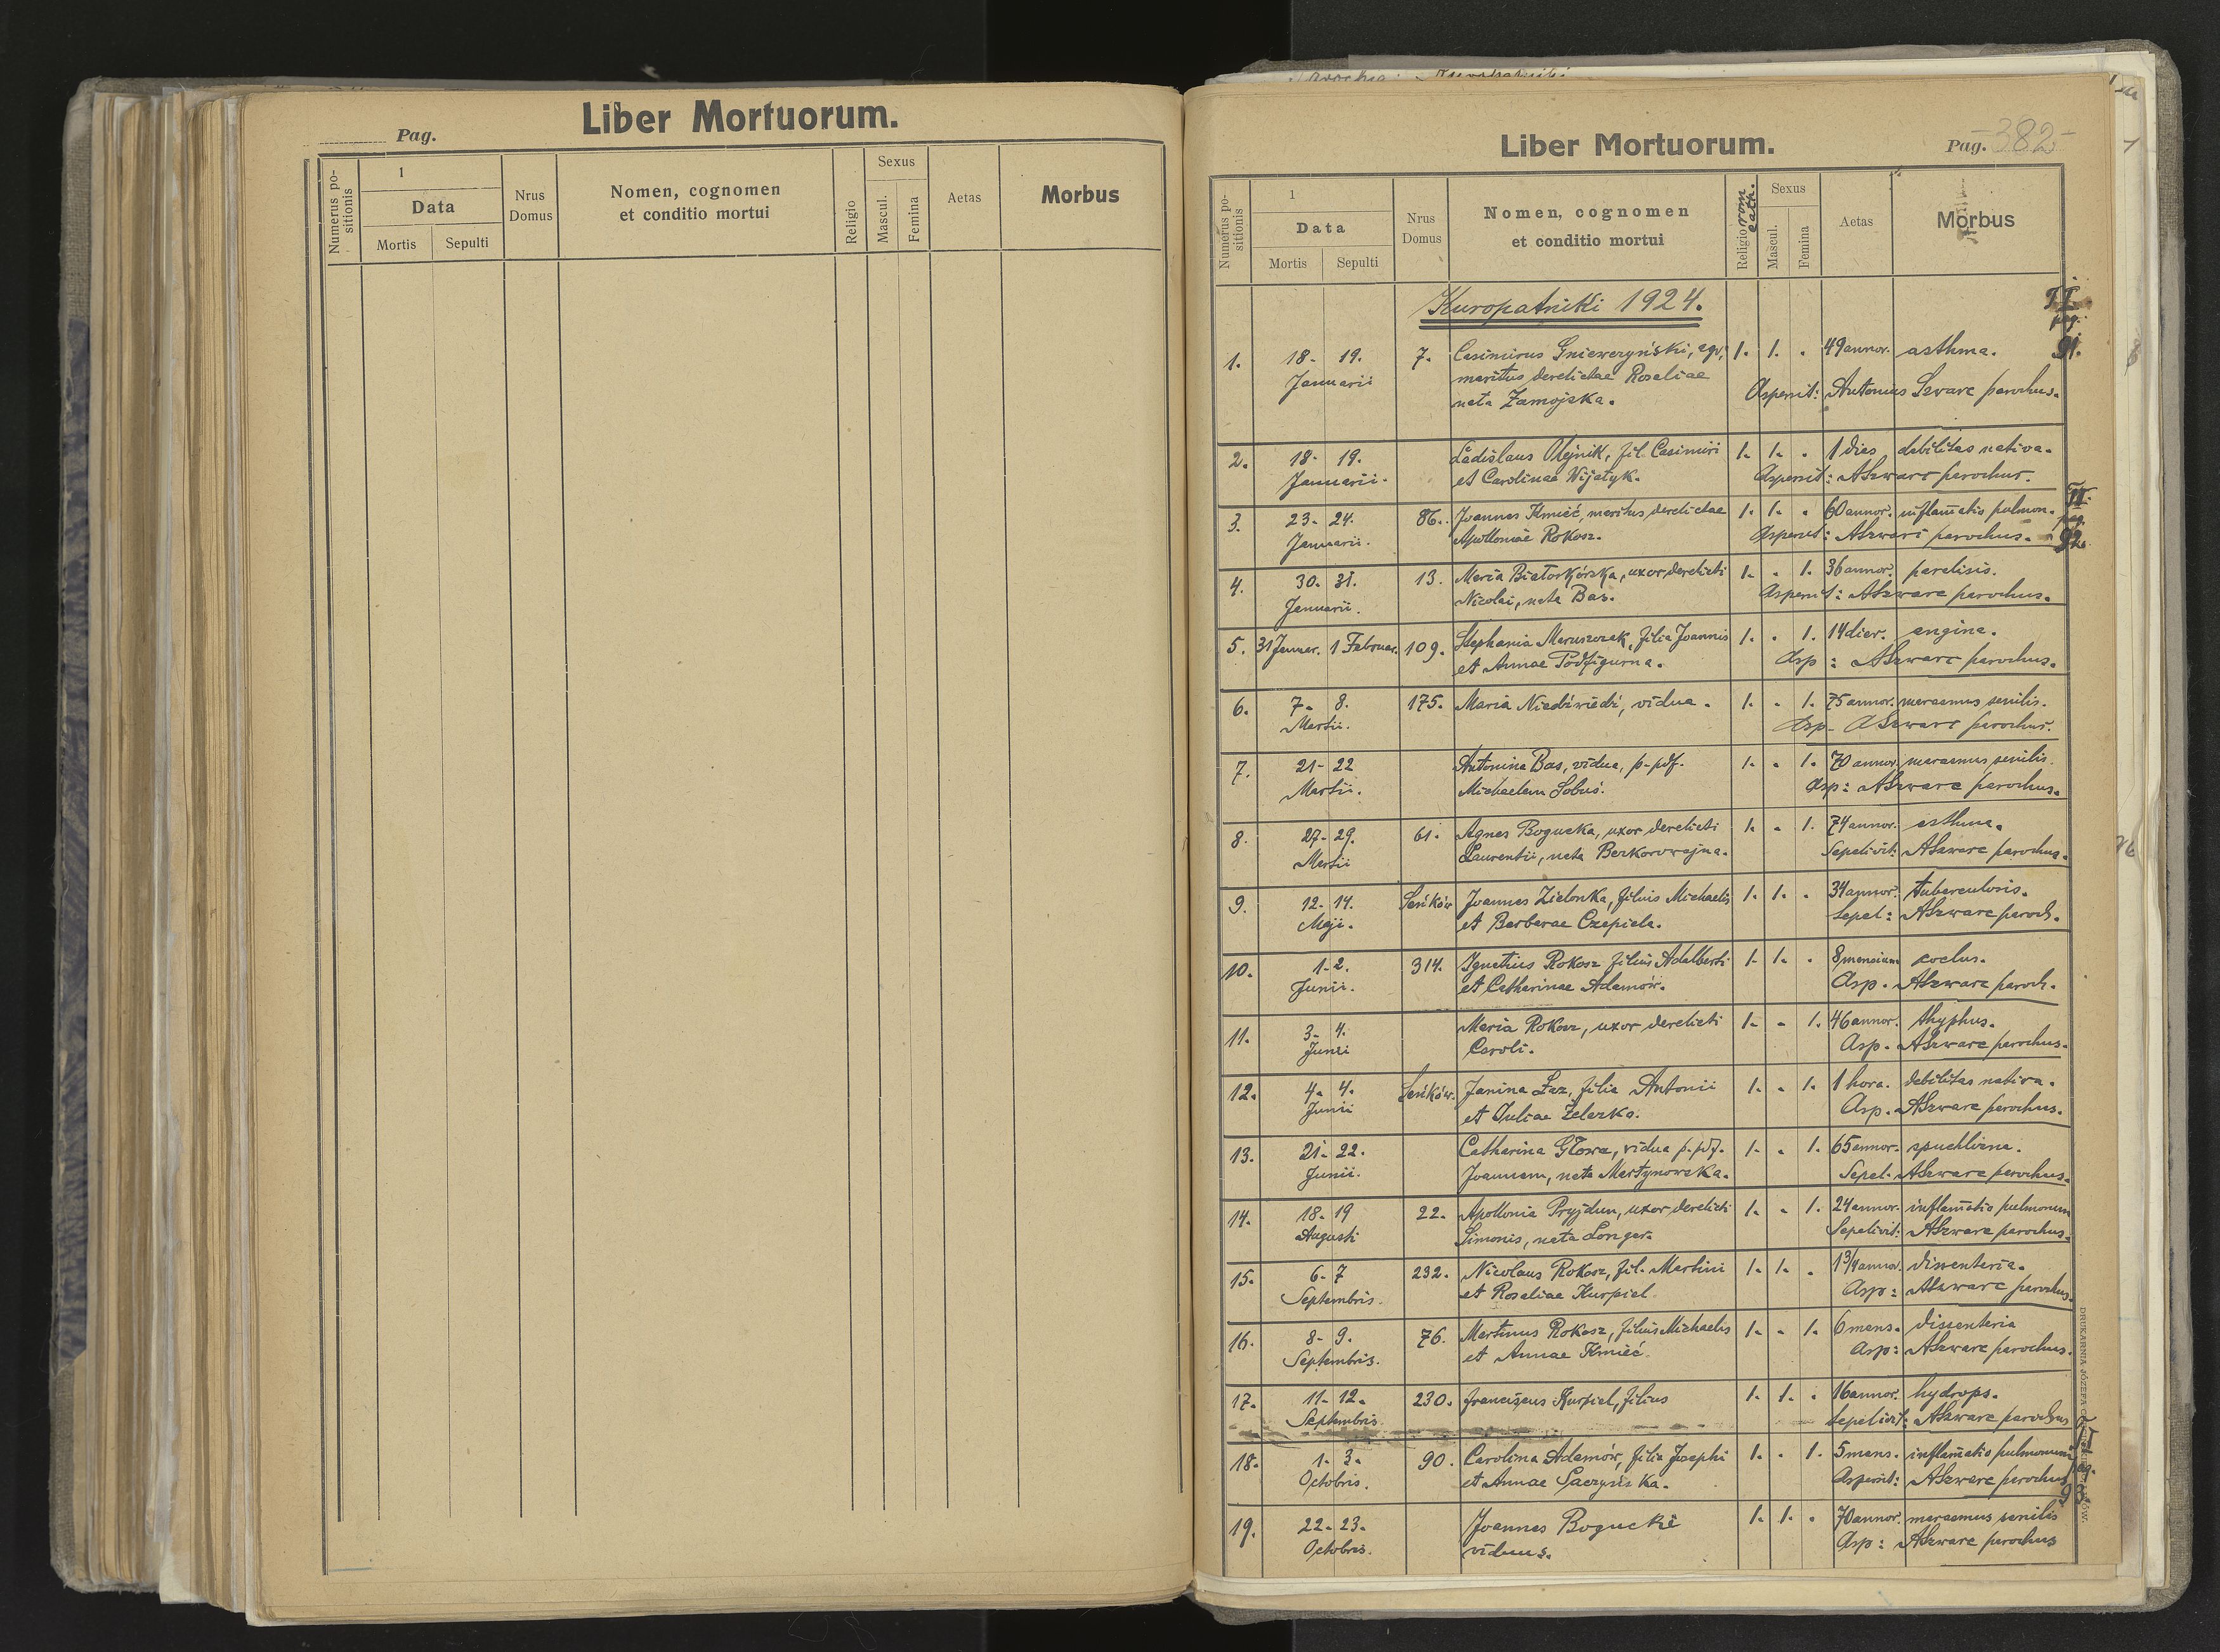 Pag.
Liber Mortuorum.
Numerus positionis
1
Data
Mortis
Sepulti
Nrus Domus
Nomen, cognomen
et conditio mortui
Religio
Sexus
Mascul.
Femina
Aetas
Morbus
Liber Mortuorum.
Pag. -382-
Numerus positionis
1
Data
Mortis
Sepulti
Nrus Domus
Nomen, cognomen
et conditio mortui
Religio rom. cath.
Sexus
Mascul.
Femina
Aetas
Morbus
Kuropatniki 1924.
T.I. pag. 91.
1. 18- 19. 7. Casimirus Gnieweryński, agr. 1. 1. . 49 annor. asthma.
Januarii maritus derelictae Rosaliae Aspersit: Antonius Szwarc parochus.
nata Zamojska.
2. 18- 19. Ladislaus Olejnik, fil. Casimiri 1. 1. . 1 dies debilitas nativa.
Januarii. et Carolinae Wijatyk. Aspersit: ASzwarc parochus.
3. 23- 24. 86. Joannes Kmieć, maritus derelictae 1. 1. . 60 annor. inflam̄atio pulmon.
Januarii. Apolloniae Rokosz. Aspersit: ASzwarc parochus.
pag. 92.
4. 30. 31. 13. Maria Białoskórska, uxor derelicti 1. . 1. 36 annor. paralisis.
Januarii. Nicolai, nata Bas. Aspersit: ASzwarc parochus.
5. 31 Januar. 1 Februar. 109. Stephania Maruszczak, filia Joannis 1. . 1. 14 dier. angina.
et Annae Podfigurna. Asp: ASzwarc parochus.
6. 7. 8. 175. Maria Niedźwiedź, vidua. 1. . 1. 75 annor. marasmus senilis.
Martii. Asp- ASzwarc parochus.
7. 21- 22 Antonina Bas, vidua, p-pdf. 1. . 1. 70 annor. marasmus senilis.
Martii. Michaelem Sobuś. Asp: ASzwarc parochus.
8. 27- 29. 61. Agnes Bogucka, uxor derelicti 1. . 1. 74 annor. asthma.
Martii Laurentii, nata Bezkorowajna. Sepelivit: ASzwarc parochus.
9. 12. 14. Seńków Joannes Zielonka, filius Michaelis 1. 1. . 34 annor. tuberculosis.
Maji. et Barbarae Czepiela. Sepel: ASzwarc paroch.
10. 1-2. 314. Ignatius Rokosz filius Adalberti 1. 1. . 8 mensium
Junii. et Catharinae Adamów. Asp. ASzwarc paroch.
11. 3- 4. Maria Rokosz, uxor derelicti 1. . 1. 46 annor. thyphus.
Junii Caroli. Asp. ASzwarc parochus.
12. 4. 4. Seńków. Janina Łaz, filia Antonii 1. . 1. 1 hora. debilitas nativa.
Junii et Juliae Żelazka. Asp. ASzwarc parochus.
13. 21- 22. Catharina Głowa, vidua p.pdf. 1. . 1. 65 annor. spuchlizna.
Junii. Joannem, nata Martynowska. Sepel. ASzwarc parochus.
14. 18- 19 22. Apollonia Pryjdun, uxor derelicti 1. . 1. 24 annor. inflam̄atio pulmonum
Augusti Simonis, nata Longar. Sepelivit: ASzwarc parochus.
15. 6- 7 232. Nicolaus Rokosz, fil. Martini 1. 1. . 1 3/4 annor. dissenteria.
Septembris. et Rosaliae Kurpiel. Asp: ASzwarc parochus.
16. 8- 9. 76. Martinus Rokosz, filius Michaelis 1. . 1. 6 mens. dissenteria
Septembris. et Annae Kmieć. Asp: ASzwarc parochus.
17. 11- 12. 230. Franciscus Kurpiel, filius 1. 1. . 16 annor. hydrops.
Septembris. Sepelivit: ASzwarc parochus
18. 1. 3. 90. Carolina Adamów, filia Josephi 1. . 1. 5 mens. inflam̄atio pulmonum
Octobris. et Annae Saczyńska. Aspersit: ASzwarc parochus
pag. 93.
19. 22- 23. Joannes Bogucki 1. 1. . 70 annor. marasmus senilis
Octobris. viduus. Asp: ASzwarc parochus
DRUKARNIA JÓZEFA